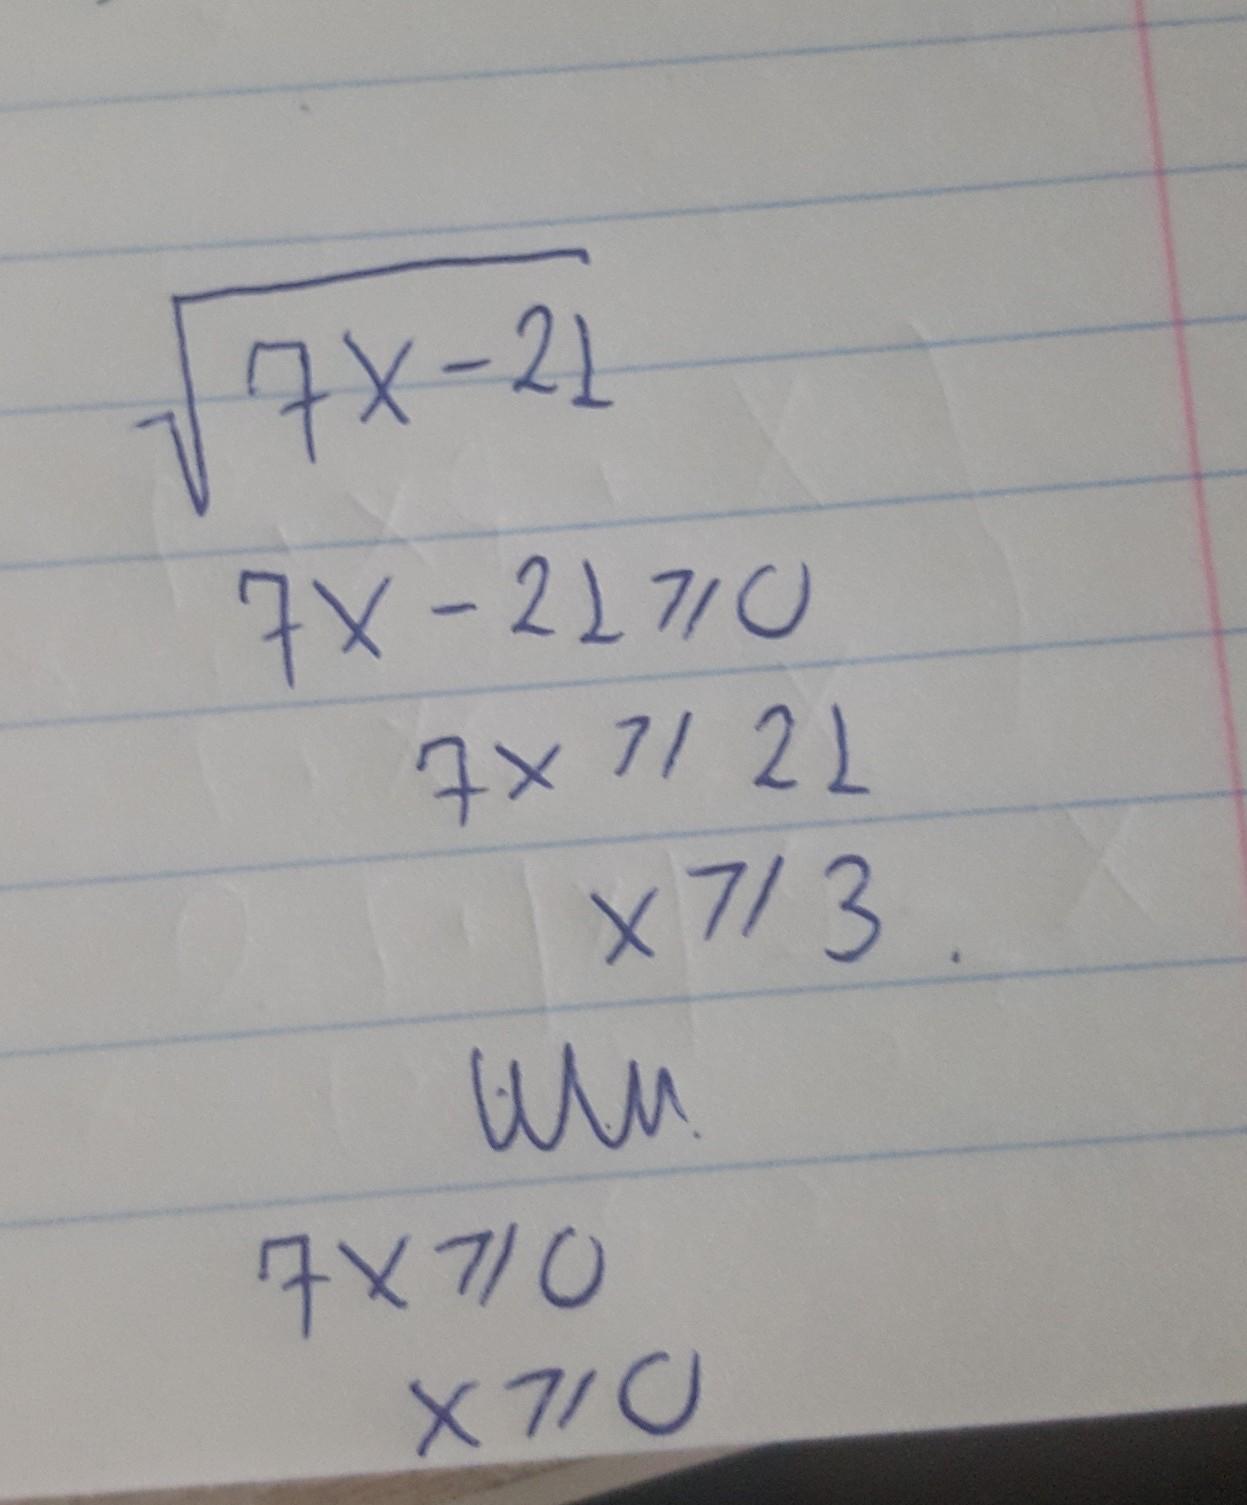 √7x-21
7x-21⩾0
7x⩾21
x⩾3.
или
7x⩾0
x⩾0